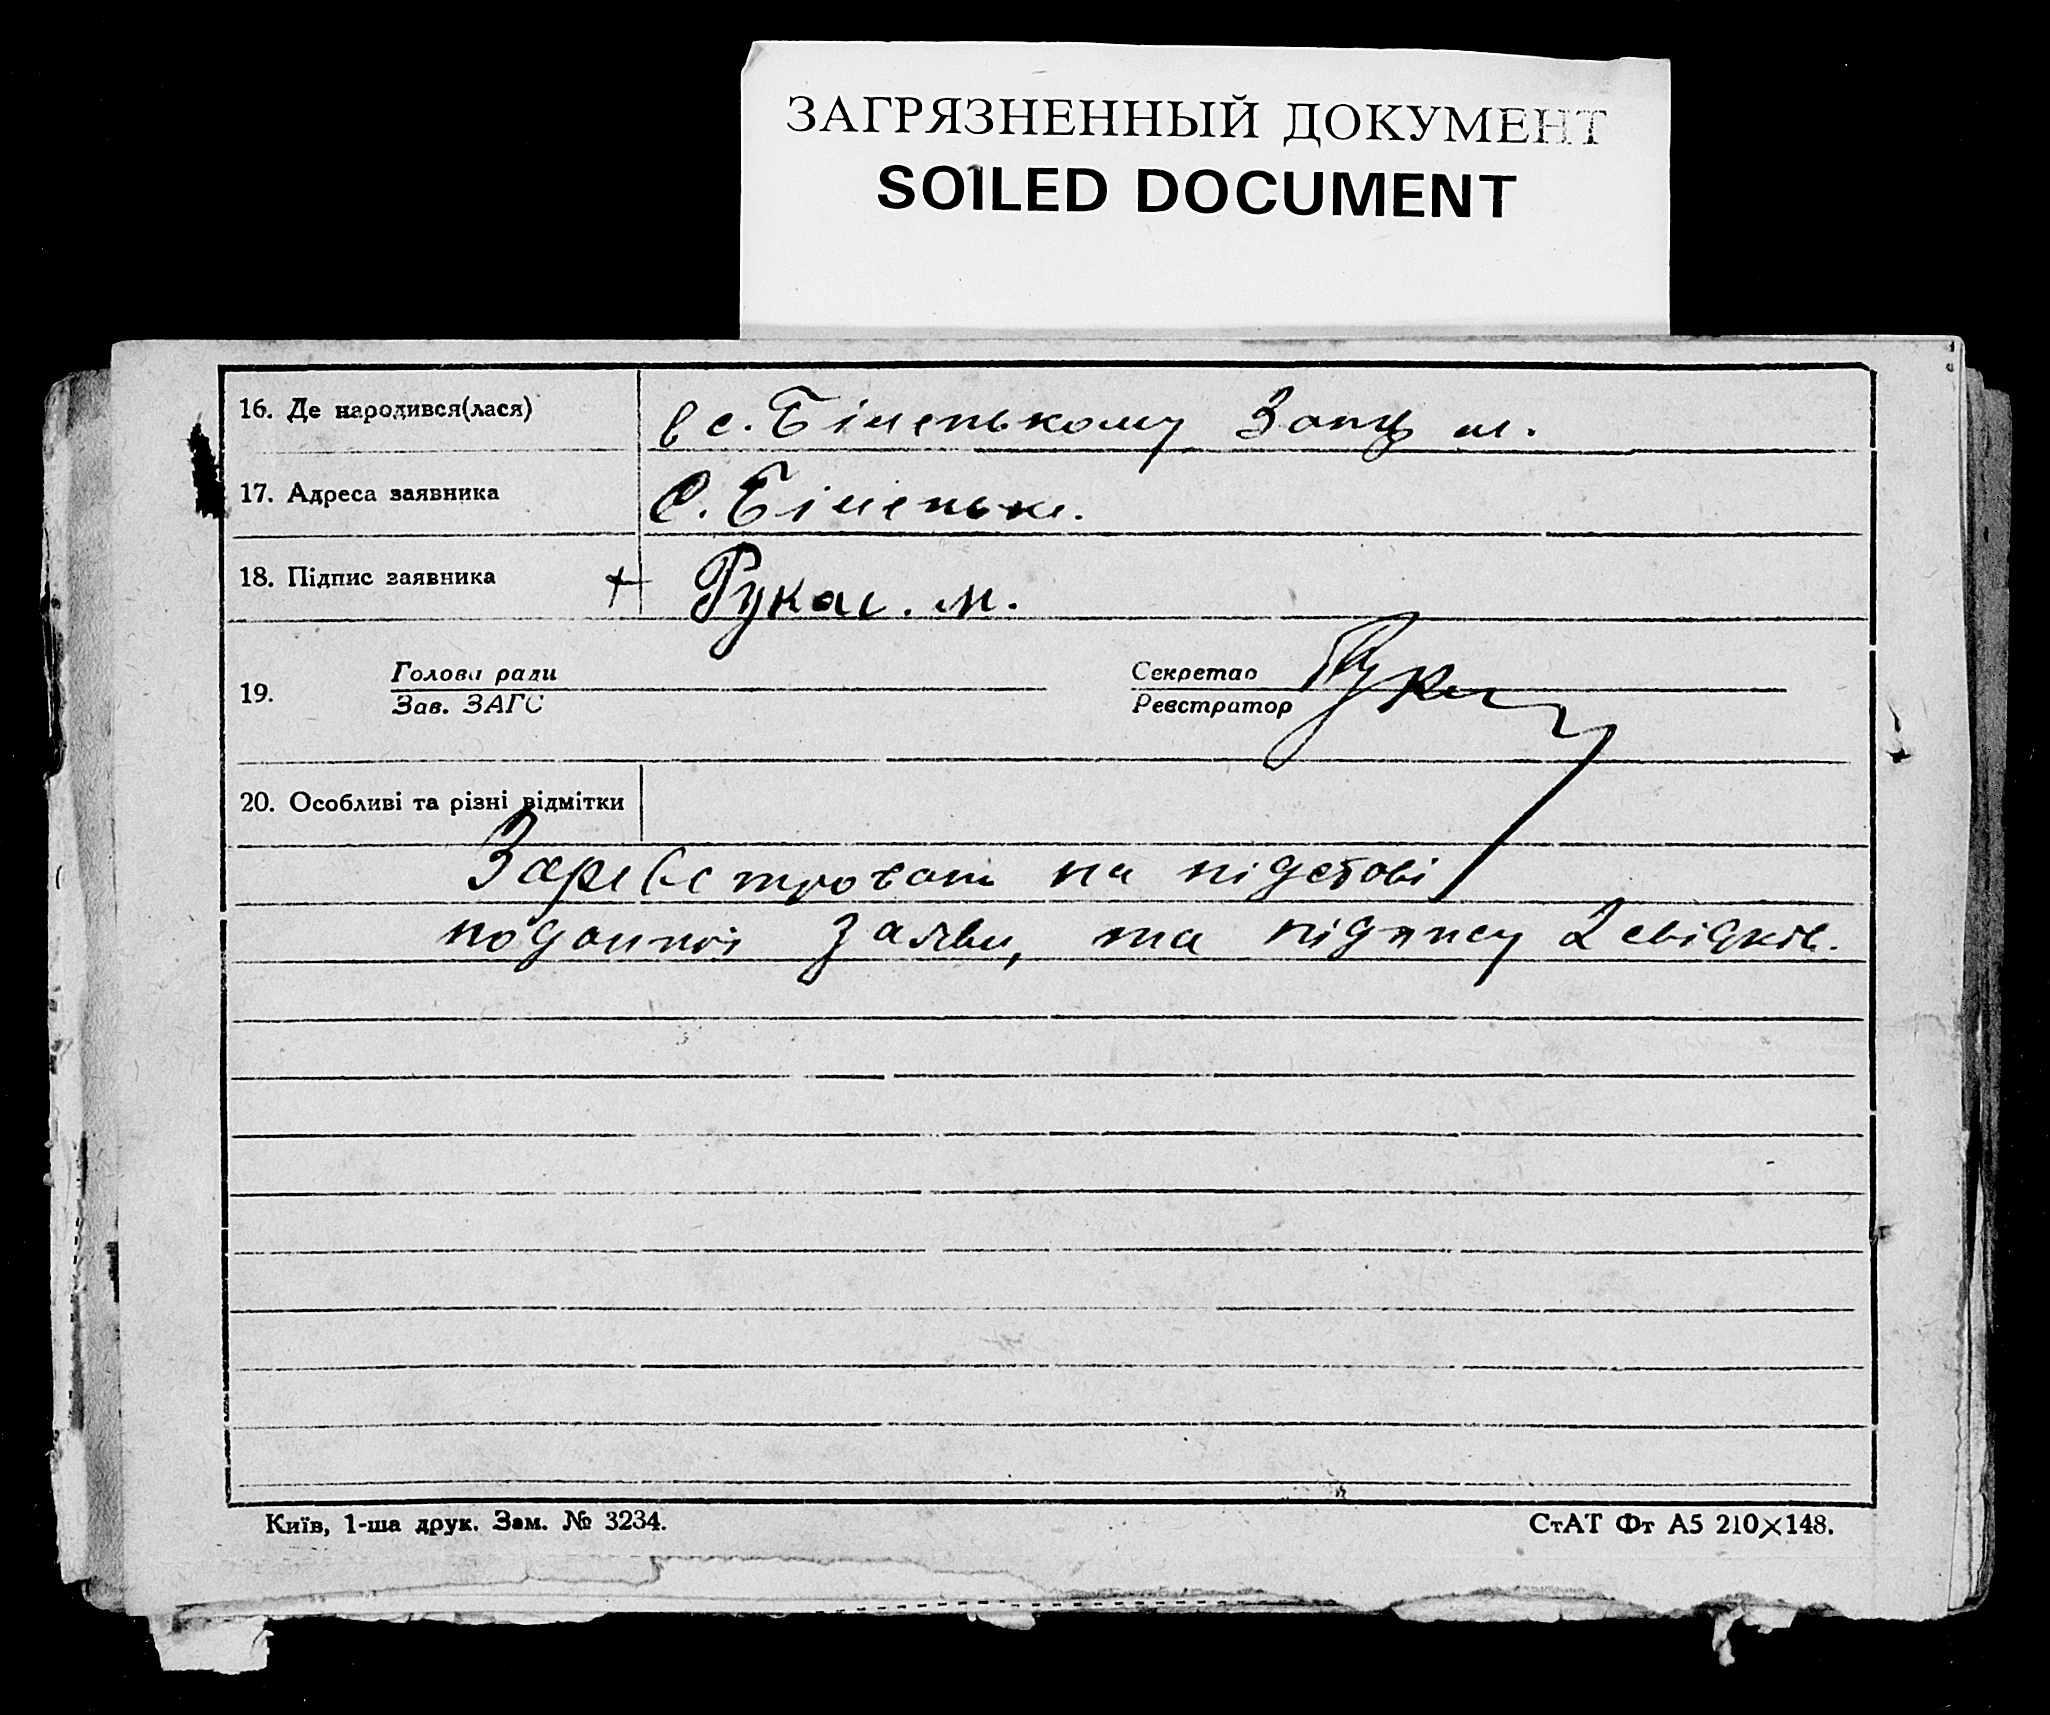 ЗАГРЯЗНЕННЫЙ ДОКУМЕНТ
SOILED DOCUMENT
16. Де народився(лася) в с. Біленькому Запор
17. Адреса заявника С. Біленьке.
18. Підпис заявника + Рукас. м.
19. Голова ради Секретар
Зав. ЗАГС Реєстратор
20. Особливі та різні відмітки
на підставі
поданної заяви, та підпису 2 свідків.
Київ, 1-ша друк. Зам. № 3234. СтАТ Фт А5 210×148.